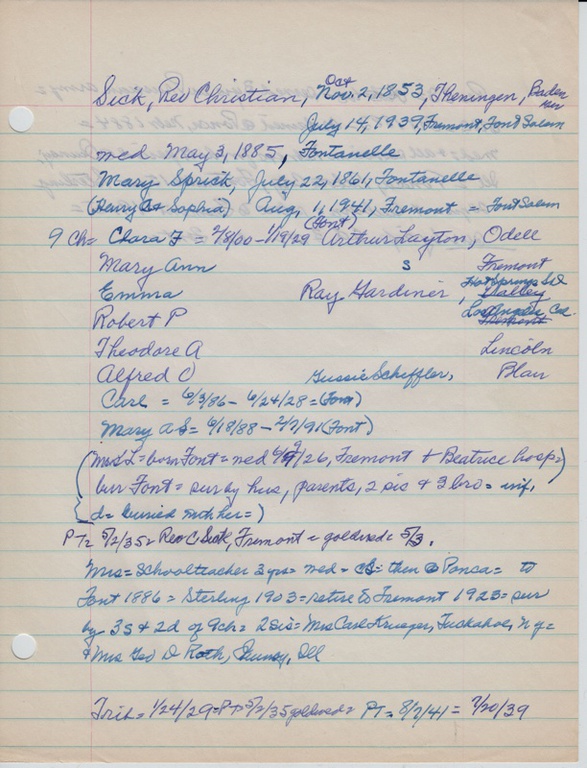 Sick, Rev Christian, Oct Nov. 2, 1853, Theningen, Baden Ger
July 14, 1939, Fremont, Font Salem
med May 3, 1885, Fontanelle
Mary Sprick, July 22, 1861, Fontanelle
(Henry & Sophia) Aug, 1, 1941, Fremont = Font Salem
9 Ch = Clara F = 2/8/00 - 1/19/29 (Font) Arthur Layton, Odell
Mary Ann s Fremont
Emma Ray Gardiner, Hot Springs Sd
Robert P Los Angeles Cal.
Theodore A Lincoln
Alfred O Gussie Schiffler, Blair
Carl = 6/3/86 - 6/24/28 = (Font)
Mary A S = 6/18/88 - 2/7/91 (Font)
(Mrs L = born Font = med /26, Fremont & Beatrice hosp =)
bur Font = sur by hus, parents, 2 sis & 3 bro = inf,
d = buried with her =)
PT = 5/2/35 = Rev C Sick, Fremont = goldwed = 5/3.
Mrs = schoolteacher 3 yrs = med = then @ Ponca = to
Font 1886 = Sterling 1903 = retire to Fremont 1923 = sur
by 3 s & 2 d of 9 ch = 2 sis = Mrs Carl Krueger, Tuckahoe, N Y =
& Mrs Geo D Roth, Ill
Trib = 1/24/29 = PT 5/2/35 goldwed = PT = 8/7/41 = 7/20/39